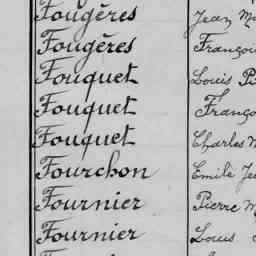 Fougères Jean
Fougères
Fouquet Louis
Fouquet
Fouquet Charles
Fourchon Emile
Fournier Pierre
Fournier Louis